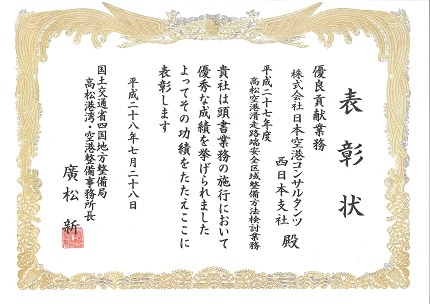 表彰状
優良貢献業務
株式会社日本空港コンサルタンツ
西日本支社 殿
平成二十七年度
高松空港滑走路端安全区域整備方法検討業務
貴社は頭書業務の施行において
優秀な成績を挙げられました
よってその功績をたたえここに
表彰します
平成二十八年七月二十八日
国土交通省四国地方整備局
高松港湾・空港整備事務所長
廣松 新